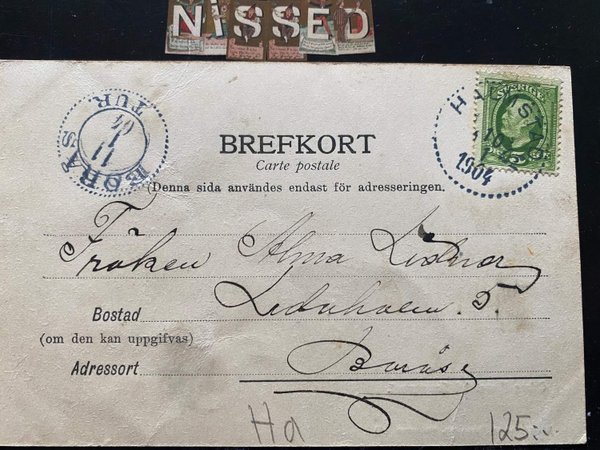 NISSED
SVERIGE
5
HALMSTAD
10
1904
BORÅS
11
04
TUR
BREFKORT
Carte postale
(Denna sida användes endast för adresseringen.
Fröken Alma
Bostad
(om den kan uppgifvas)
5.
Adressort Borås
Ha 125:-